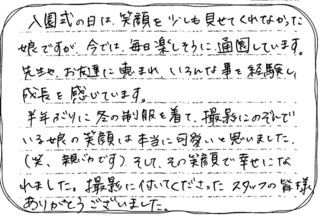 入園式の日は、笑顔を少しも見せてくれなかった
娘ですが、今では、毎日楽しそうに通園しています。
先生や、お友達に恵まれ、いろんな事を経験し
成長を感じています。
半年ぶりに冬の制服を着て、撮影にのぞんで
いる娘の笑顔は本当に可愛いと思いました。
(笑、親バカです) そして、その笑顔で幸せにな
れました。撮影に付いてくださった スタッフの皆様
ありがとうございました。